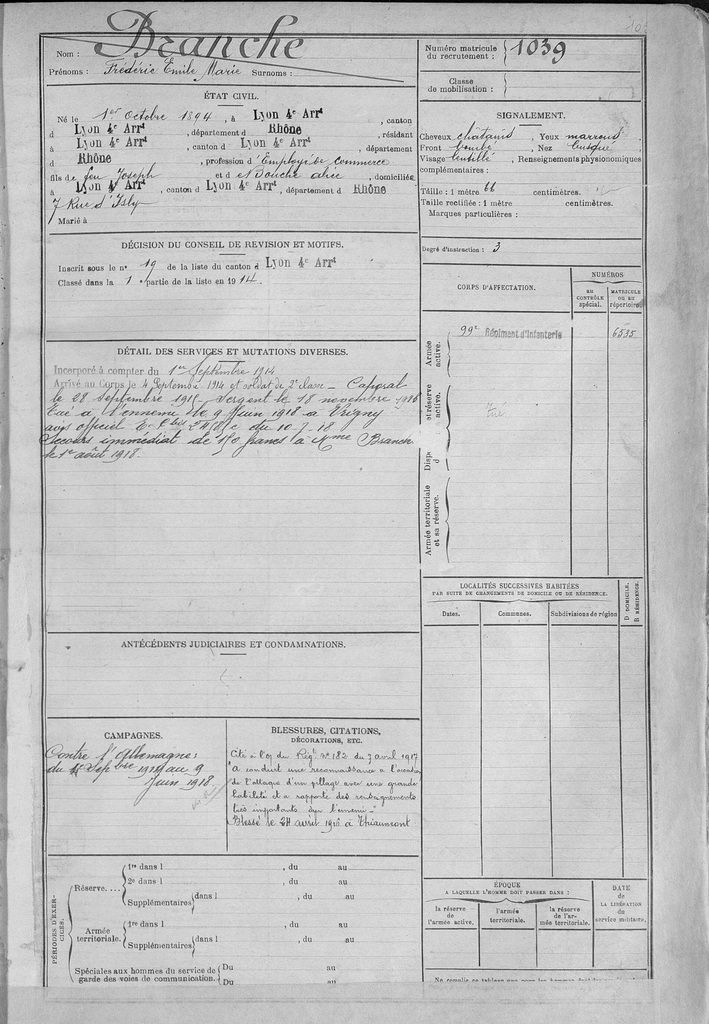 Nom : Branche
Prénoms : Frédéric Emile Marie Surnoms :
ÉTAT CIVIL.
Né le 1er Octobre 1894, à Lyon 4e Arrt, canton
d Lyon 4e Arrt, département d Rhône, résidant
à Lyon 4e Arrt, canton d Lyon 4e Arrt, département
d Rhône, profession d'Employé de Commerce
fils de feu Joseph et d et Bouche , domiciliés
à Lyon 4e Arrt, canton d Lyon 4e Arrt, département d Rhône
7 Rue d'Isly
Marié à
DÉCISION DU CONSEIL DE REVISION ET MOTIFS.
Inscrit sous le no 19 de la liste du canton d Lyon 4e Arrt
Classé dans la 1 partie de la liste en 1914.
DÉTAIL DES SERVICES ET MUTATIONS DIVERSES.
Incorporé à compter du 1er Septembre 1914
Arrivé au Corps le 4 Septembre 1914 et soldat de 2e classe - Caporal
le 28 Septembre 1915 - Sergent le 18 novembre 1916
Tué à l'ennemi le 9 Juin 1918 à Vrigny
avis officiel du 10-7-18
Secours immédiat de 150 francs à Mme Branche
le 1er août 1918.
ANTÉCÉDENTS JUDICIAIRES ET CONDAMNATIONS.
CAMPAGNES.
Contre l'Allemagne :
du Septbre 1914 au 9
Juin 1918
BLESSURES, CITATIONS,
DÉCORATIONS, ETC.
Cité à l'o/ du Régt no 182 du 7 avril 1917
"a conduit une reconnaissance à l'occasion
de l'attaque d'un village avec une grande
habileté et a rapporté des renseignements
très importants sur l'ennemi -"
Blessé le 24 avril 1916 à Thiaumont
PÉRIODES D'EXERCICES.
Réserve....
1re dans l , du au
2e dans l , du au
Supplémentaires dans l , du au
Armée territoriale.
1re dans l , du au
Supplémentaires dans l , du au
Spéciales aux hommes du service de garde des voies de communication.
Du au
Du au
Numéro matricule du recrutement : 1039
Classe de mobilisation :
SIGNALEMENT.
Cheveux châtains Yeux marrons
Front bombé Nez busqué
Visage , Renseignements physionomiques
complémentaires :
Taille : 1 mètre 66 centimètres.
Taille rectifiée : 1 mètre centimètres.
Marques particulières :
Degré d'instruction : 3
CORPS D'AFFECTATION.
NUMÉROS
AU CONTRÔLE spécial.
MATRICULE OU AU répertoire
Armée active.
99e Régiment d'Infanterie 6535
et réserve active.
Armée territoriale et sa réserve.
LOCALITÉS SUCCESSIVES HABITÉES
PAR SUITE DE CHANGEMENTS DE DOMICILE OU DE RÉSIDENCE.
Dates.
Communes.
Subdivisions de région
D DOMICILE.
R RÉSIDENCE.
ÉPOQUE
A LAQUELLE L'HOMME DOIT PASSER DANS :
la réserve de l'armée active.
l'armée territoriale.
la réserve de l'armée territoriale.
DATE de LA LIBÉRATION du service militaire.